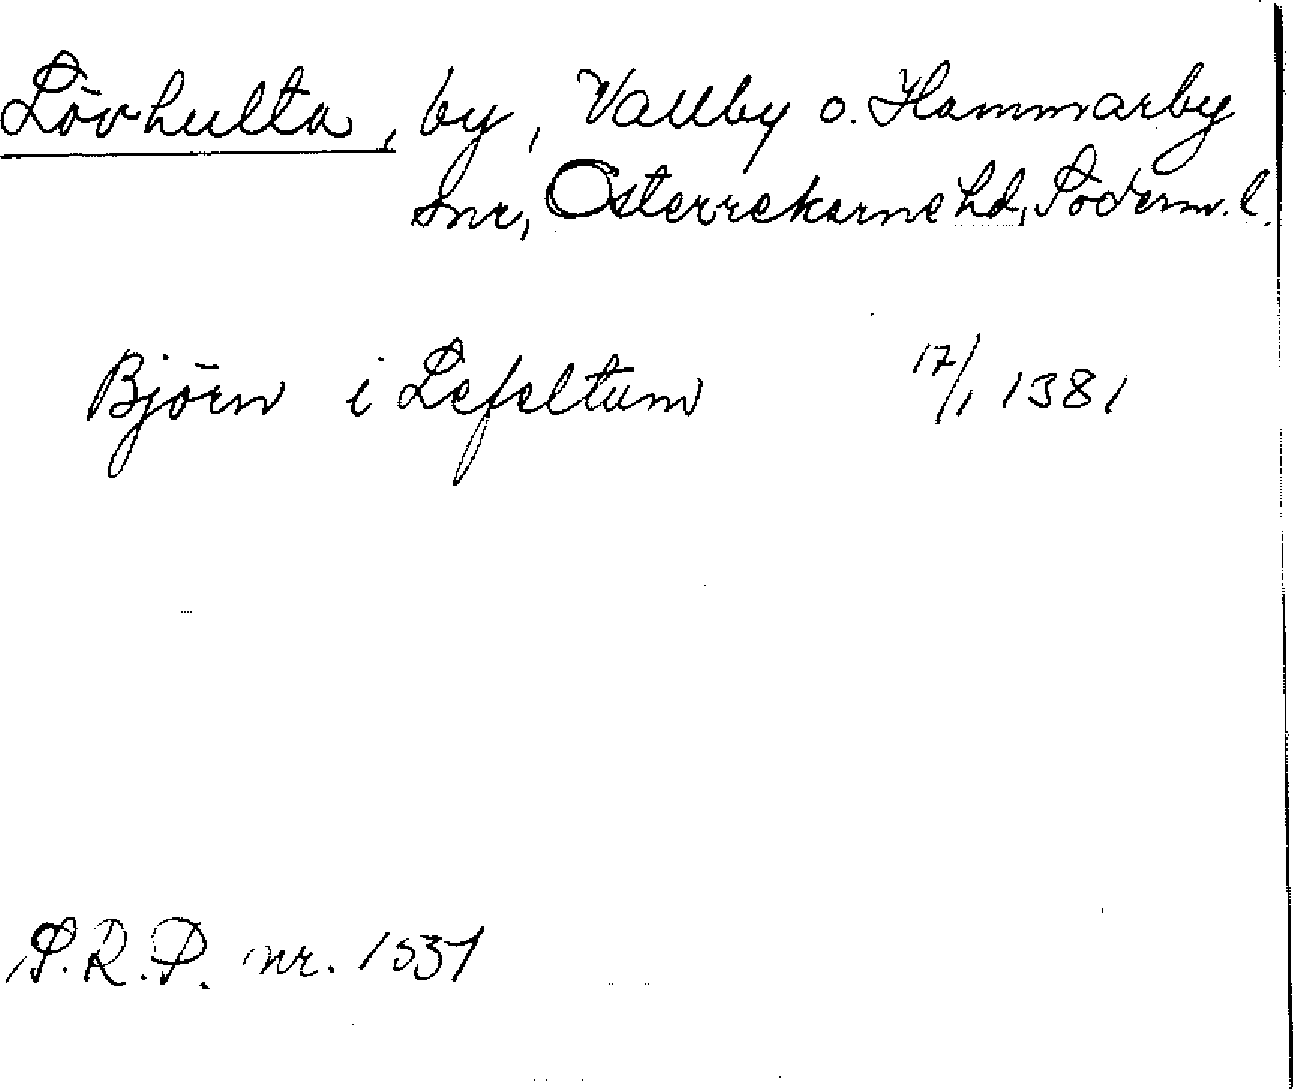 Lövhulta, by, Vallby o. Hammarby
snr, Österrekarne hd, Söderm. l.
Björn i Lefeltum 17/1 1381
S.R.P. nr. 1537